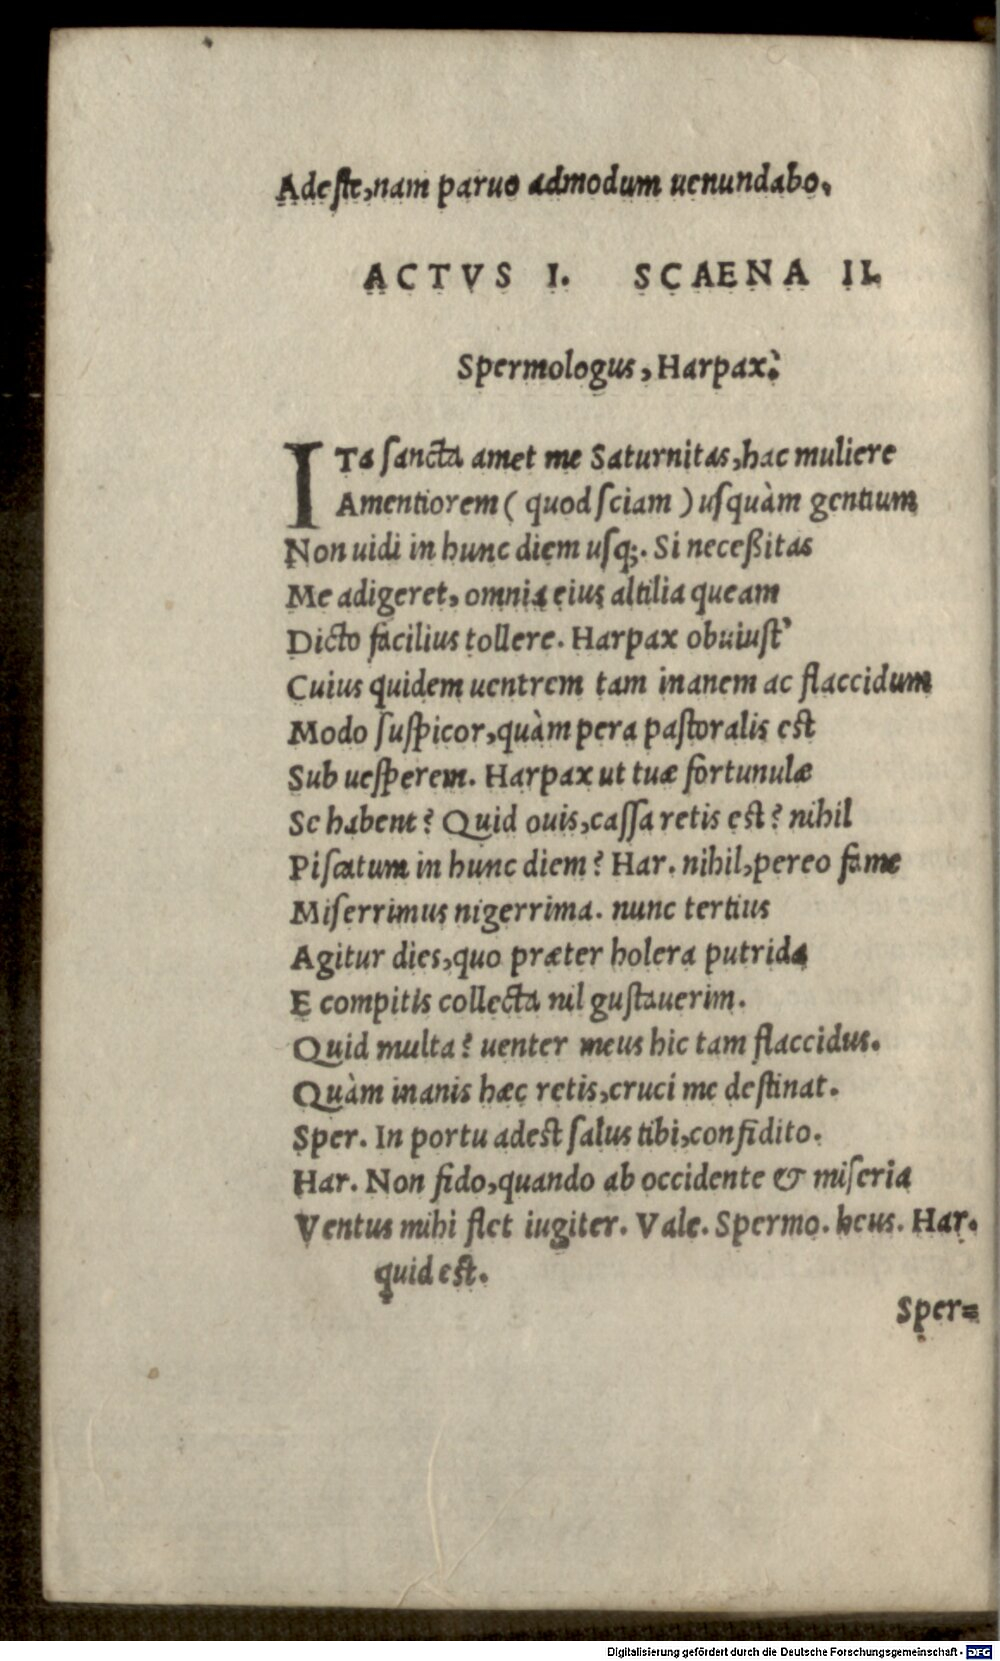 Adeste, nam paruo admodum uenundabo.
ACTVS I. SCAENA II.
Spermologus, Harpax.
ITa ſancta amet me Saturnitas, hac muliere
Amentiorem ( quod ſciam ) uſquàm gentium
Non uidi in hunc diem uſq;. Si neceßitas
Me adigeret, omnia eius altilia queam
Dicto facilius tollere. Harpax obuiuſt’
Cuius quidem uentrem tam inanem ac flaccidum
Modo ſuſpicor, quàm pera paſtoralis est
Sub ueſperem. Harpax ut tuæ fortunulæ
Se habent? Quid ouis, caſſa retis est? nihil
Piſcatum in hunc diem? Har. nihil, pereo fame
Miſerrimus nigerrima. nunc tertius
Agitur dies, quo præter holera putrida
E compitis collecta nil guſtauerim.
Quid multa? uenter meus hic tam flaccidus.
Quàm inanis hæc retis, cruci me deſtinat.
Sper. In portu adest ſalus tibi, confidito.
Har. Non fido, quando ab occidente & miſeria
Ventus mihi flet iugiter. Vale. Spermo. heus. Har.
quid est.
Sper=
Digitalisierung gefördert durch die Deutsche Forschungsgemeinschaft - DFG